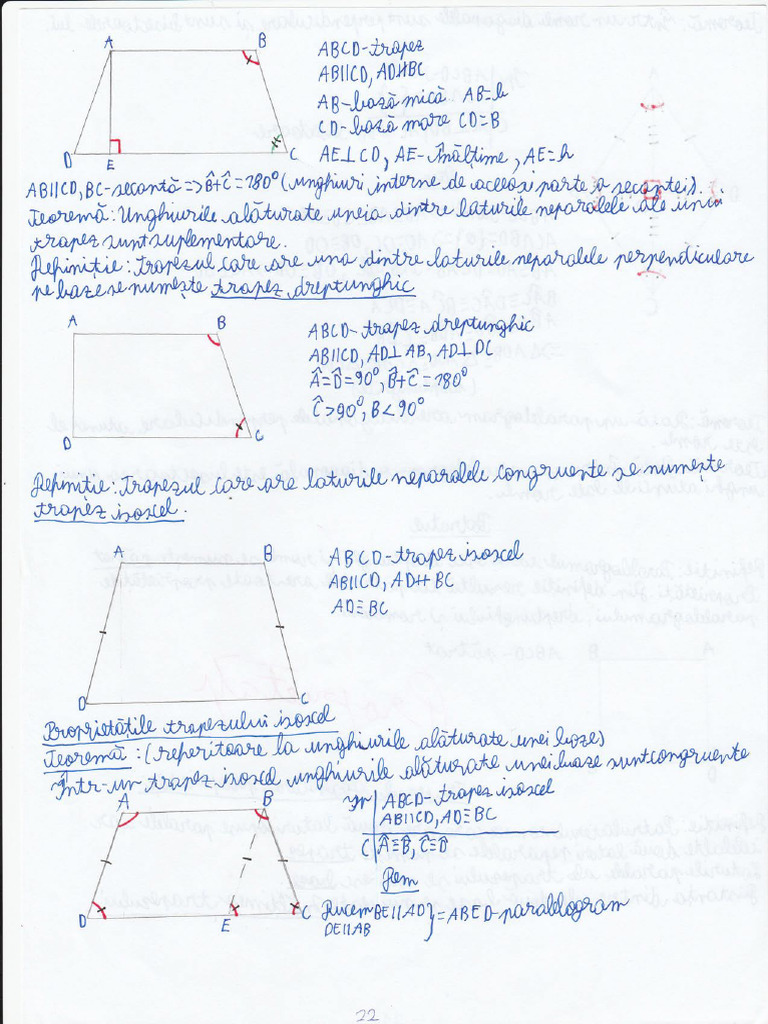 A B
D E C
ABCD-trapez
AB∥CD, AD∦BC
AB-bază mică AB=b
CD-bază mare CD=B
AE⊥CD, AE-înălțime, AE=h
AB∥CD, BC-secantă => B̂+Ĉ=180° (unghiuri interne de aceeași parte a secantei).
Teoremă: Unghiurile alăturate uneia dintre laturile neparalele ale unui
trapez sunt suplementare.
Definiție: Trapezul care are una dintre laturile neparalele perpendiculare
pe baze se numește trapez dreptunghic
A B
D C
ABCD-trapez dreptunghic
AB∥CD, AD⊥AB, AD⊥DC
Â=D̂=90°, B̂+Ĉ=180°
Ĉ>90°, B<90°
Definiție: Trapezul care are laturile neparalele congruente se numește
trapez isoscel.
A B
D C
ABCD-trapez isoscel
AB∥CD, AD∦BC
AD≡BC
Proprietățile trapezului isoscel
Teoremă: (referitoare la unghiurile alăturate unei baze)
Într-un trapez isoscel unghiurile alăturate unei baze sunt congruente
A B
D E C
Ip| ABCD-trapez isoscel
AB∥CD, AD≡BC
C| Â≡B̂, Ĉ≡D̂
Dem
Ducem BE∥AD
DE∥AB } =ABED-paralelogram
22